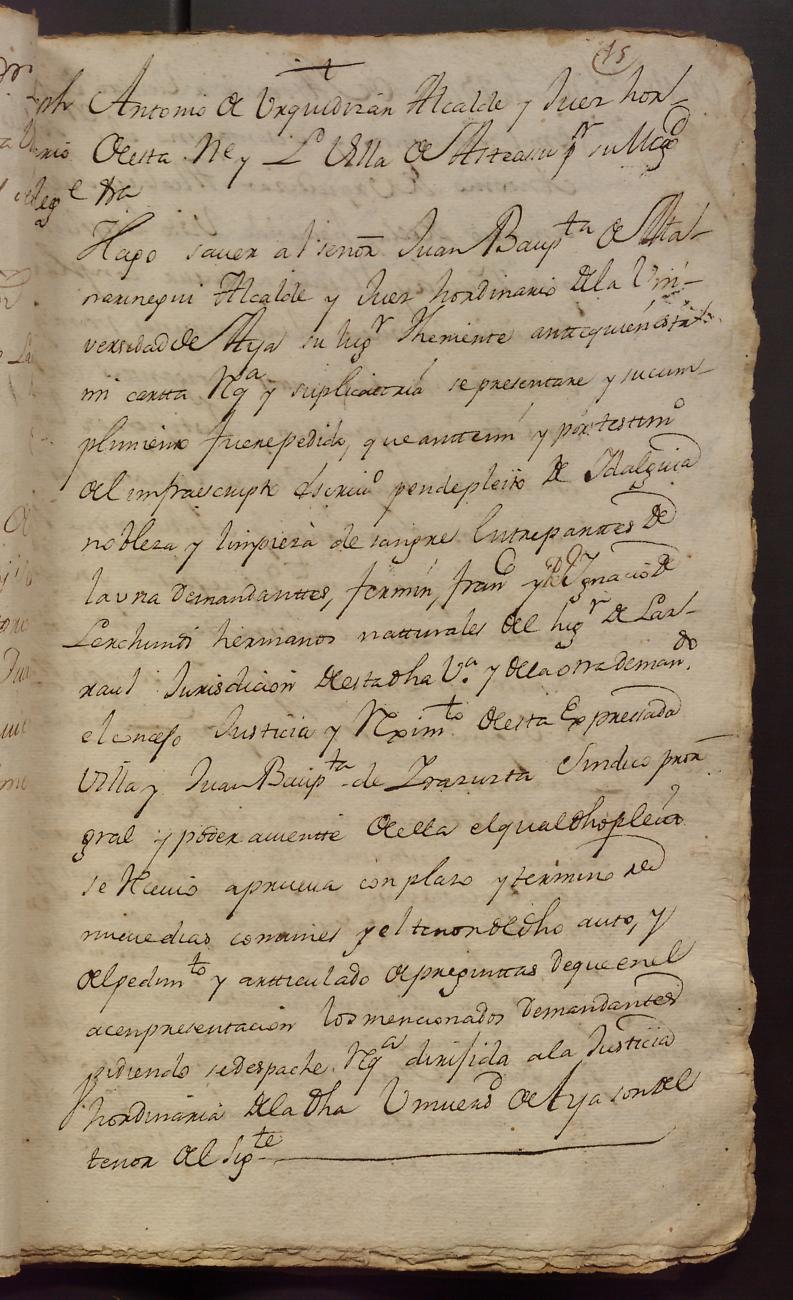 15
Antonio de Urquidizan Alcalde y Juez hor-
de esta Ne y Ll Villa de Asteasu pr su Magd
Hago saver al señor Juan Baupta de Alta-
narinegui Alcalde y Juez hordinario de la Uni-
versidad de Aya su lugr theniente antte quien esta
mi cartta Rqa y suplicatoria se presentare y su cum-
plimiento fuere pedido, que antte mi y por testimo
del infraescripto escriuo pende pleito de Idalguia
nobleza y limpieza de sangre Entre parttes de
la vna demandanttes, fermin, frando y Ignacio de
Lerchundi hermanos natturales del lugr de Lar-
raul Jurisdicion de esta dha Va y de la otra demando
el conzejo Justicia y Rximto de esta Expressada
Villa y Juan Baupta de Yrazusta Sindico pror
gral y poder auientte de ella el qual dho pleito
se Reciuio a prueua con plazo y termino de
nueue dias comunes y el tenor de dho auto, y
del pedimto y articulado de preguntas de que en el
acen presentacion los mencionados Demandantes
pidiendo se despache Rqa dirijida a la Justicia
hordinaria de la dha Uniuersd de Aya son del
tenor del sigte